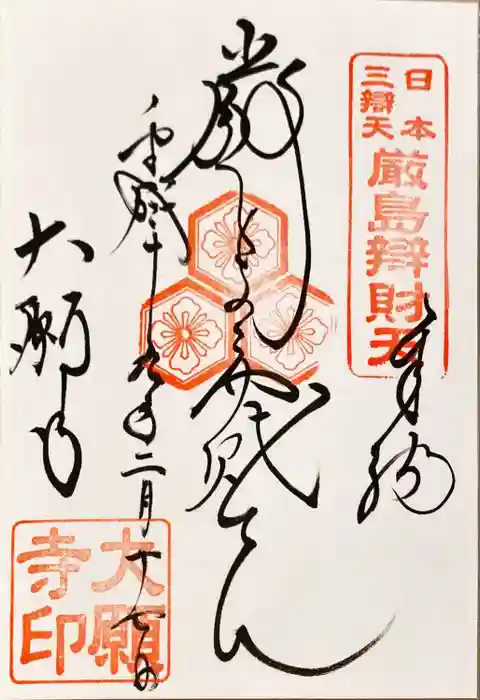 日本
三辯天
厳島辯財天
奉納
平成十九年二月十七日
大願寺
大願
寺印